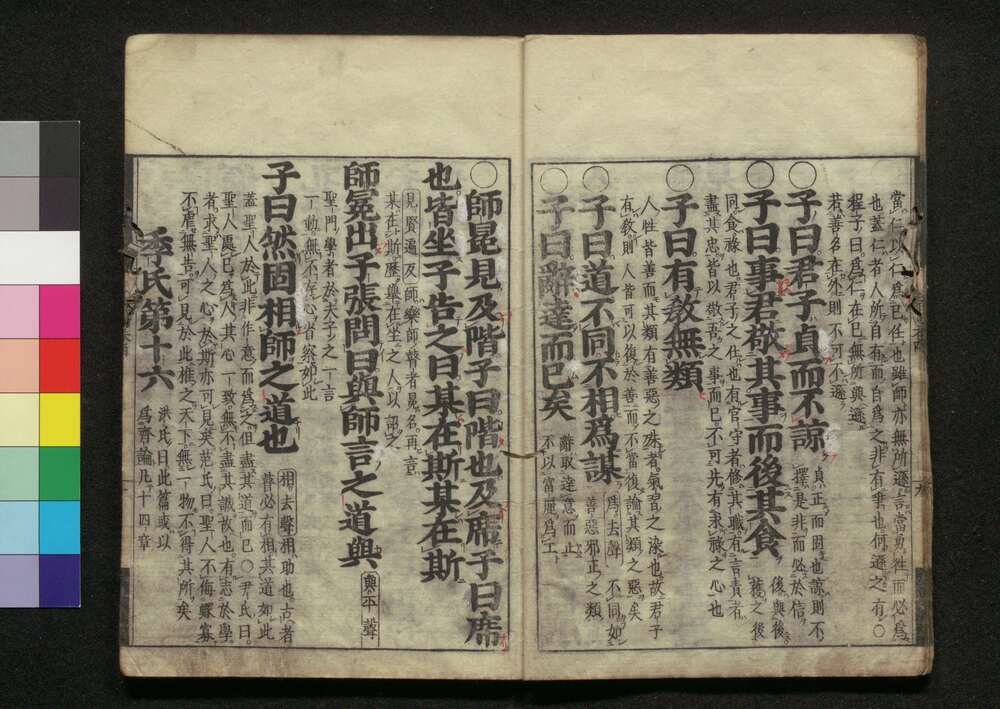 當仁以仁爲己任也雖師亦無所遜言當勇往而必爲
也蓋仁者人所自有而自爲之非有爭也何遜之有○
程子曰爲仁在己無所與遜
若善名在外則不可不遜
○子曰君子貞而不諒
貞正而固也諒則不
擇是非而必於信
○子曰事君敬其事而後其食
後與後
獲之後
同食祿也君子之仕也有官守者修其職有言責者
盡其忠皆以敬吾之事而已不可先有求祿之心也
○子曰有敎無類
人性皆善而其類有善惡之殊者氣習之染也故君子
有敎則人皆可以復於善而不當復論其類之惡矣
○子曰道不同不相爲謀
爲去聲 不同如
善惡邪正之類
○子曰辭達而已矣
辭取達意而止
不以富麗爲工
○師冕見及階子曰階也及席子曰席
也皆坐子告之曰某在斯某在斯
見賢遍反師樂師瞽者冕名再言
某在斯歷舉在坐之人以詔之
師冕出子張問曰與師言之道與
與平聲
聖門學者於夫子之一言
一動無不存心省察如此
子曰然固相師之道也
相去聲相助也古者
瞽必有相其道如此
蓋聖人於此非作意而爲之但盡其道而已○尹氏曰
聖人處己爲人其心一致無不盡其誠故也有志於學
者求聖人之心於斯亦可見矣范氏曰聖人不侮鰥寡
不虐無告可見於此推之天下無一物不得其所矣
季氏第十六
洪氏曰此篇或以
爲齊論凡十四章